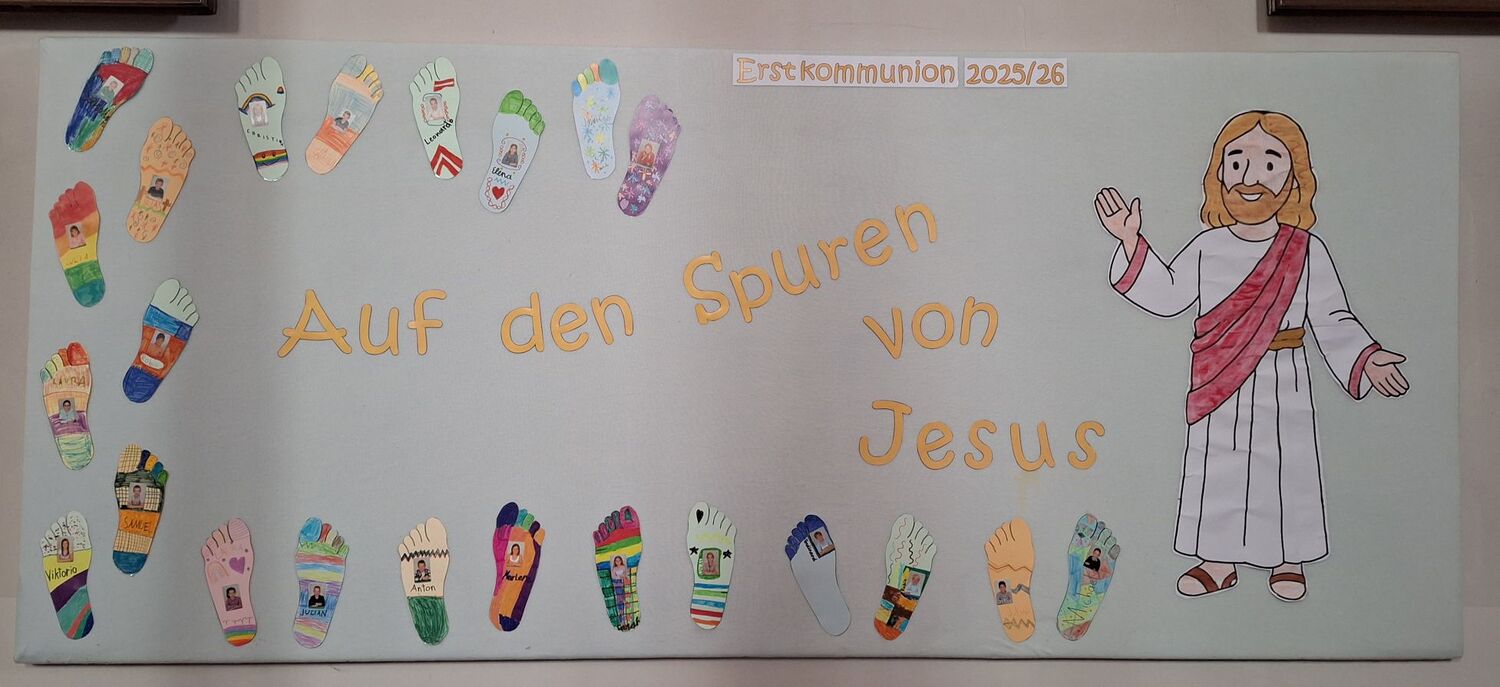 Erstkommunion 2025/26
Auf den Spuren
von
Jesus
CHRISTIAN
Leonardo
Elena
JULIA
LAURA
SAMUEL
Viktoria
JULIAN
Anton